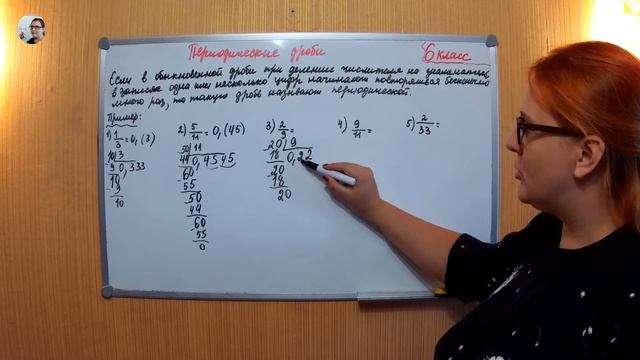 Периодические дроби
6 класс
Если в обыкновенной дроби при делении числителя на знаменатель
в записи одна или несколько цифр начинают повторяться бесконечно
много раз, то такую дробь называют периодической.
Пример:
1) 1/3 = 0,(3)
10 3
9 0,333
10
9
10
2) 5/11 = 0,(45)
50 11
44 0,4545
60
55
50
44
60
55
0
3) 2/9 =
20 9
18 0,22
20
18
20
4) 9/11 =
5) 2/33 =